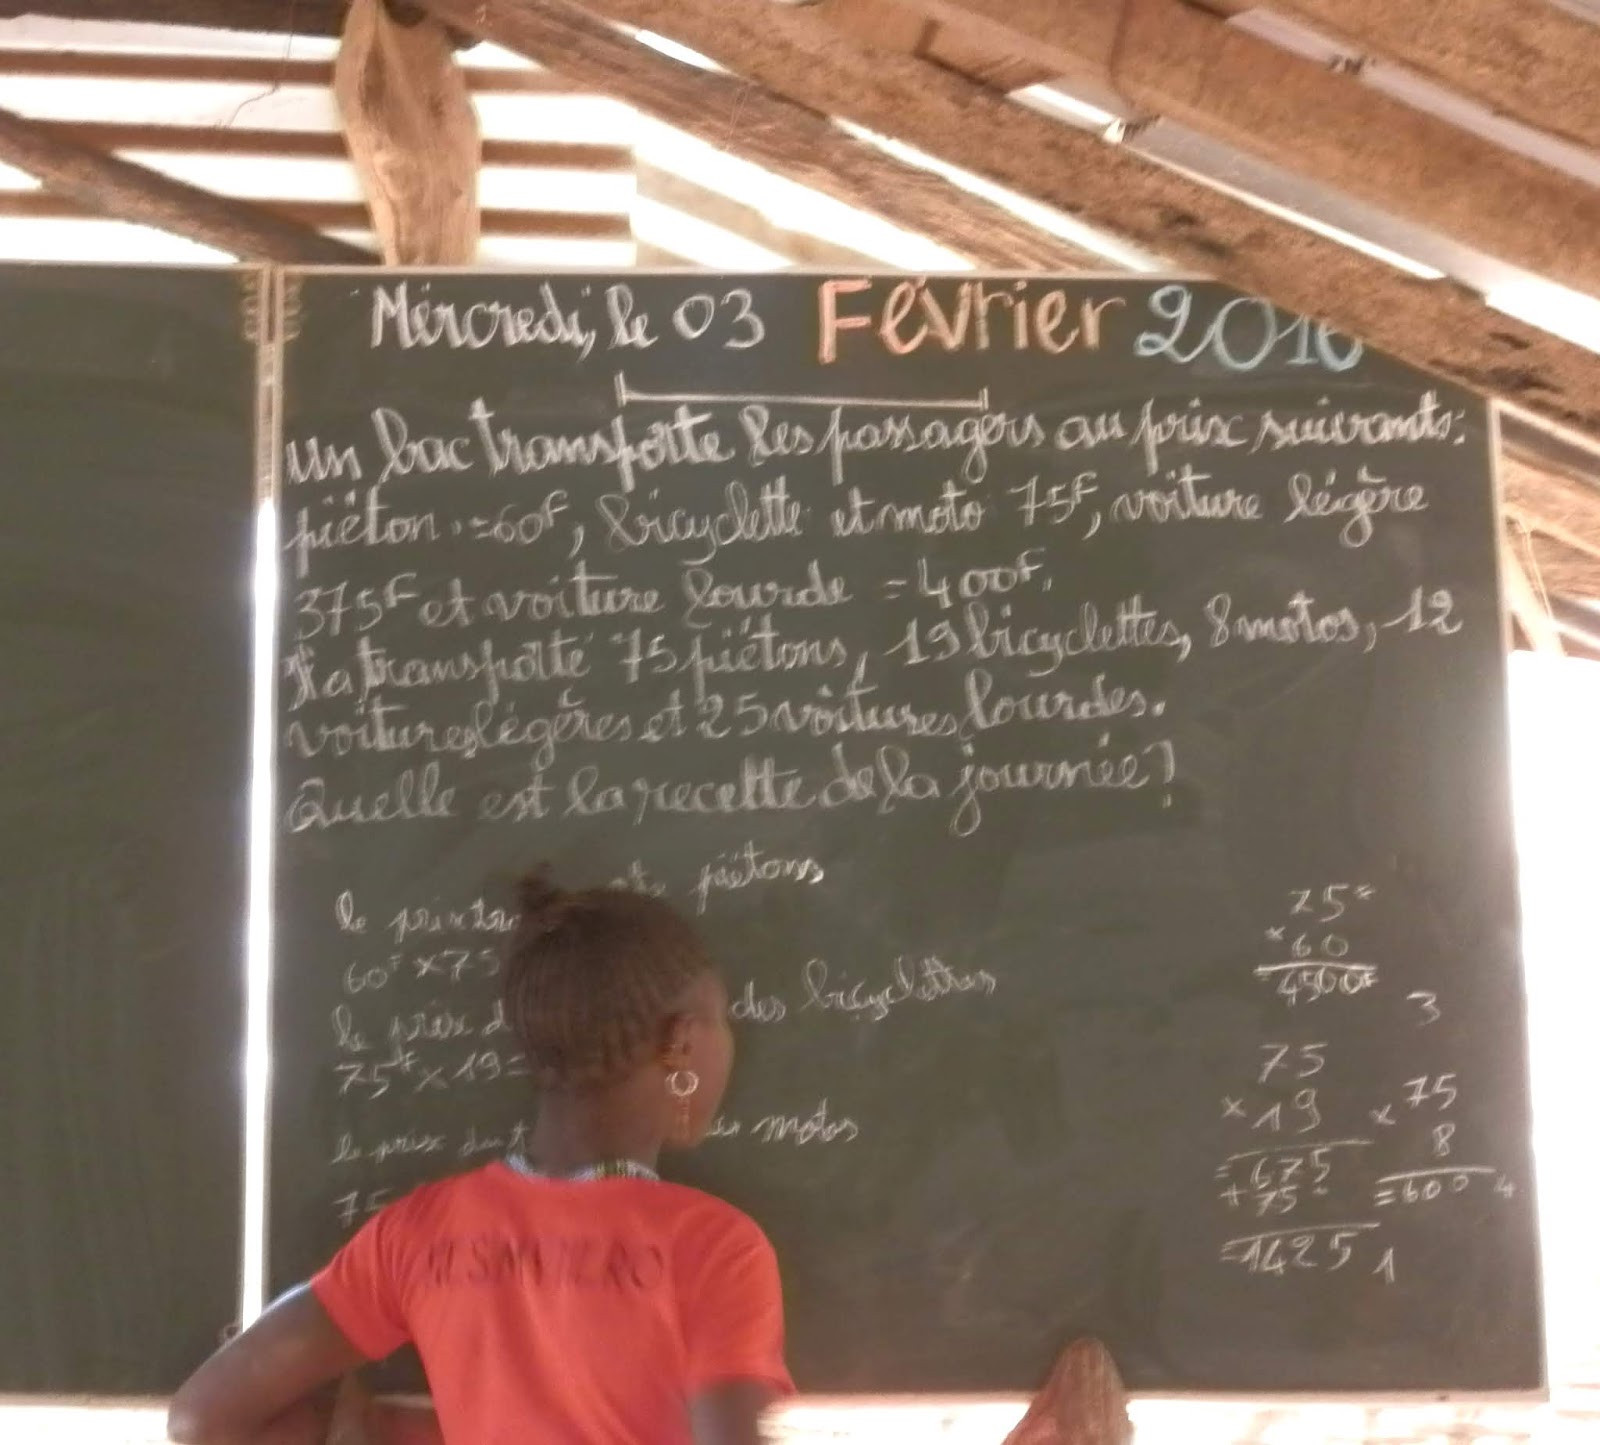 Mercredi, le 03 Février 2016
Un bac transporte les passagers au prix suivants:
piéton = 60F, bicyclette et moto 75F, voiture légère
375F et voiture lourde = 400F.
Il a transporté 75 piétons, 19 bicyclettes, 8 motos, 12
voitures légères et 25 voitures lourdes.
Quelle est la recette de la journée?
le prix piétons
60F x 75
le prix d des bicyclettes
75F x 19 =
le prix du t motos
75
75F
x 60
4500F
3
75
x 19
= 675
+ 75
= 1425
1
75
x 8
= 600
4